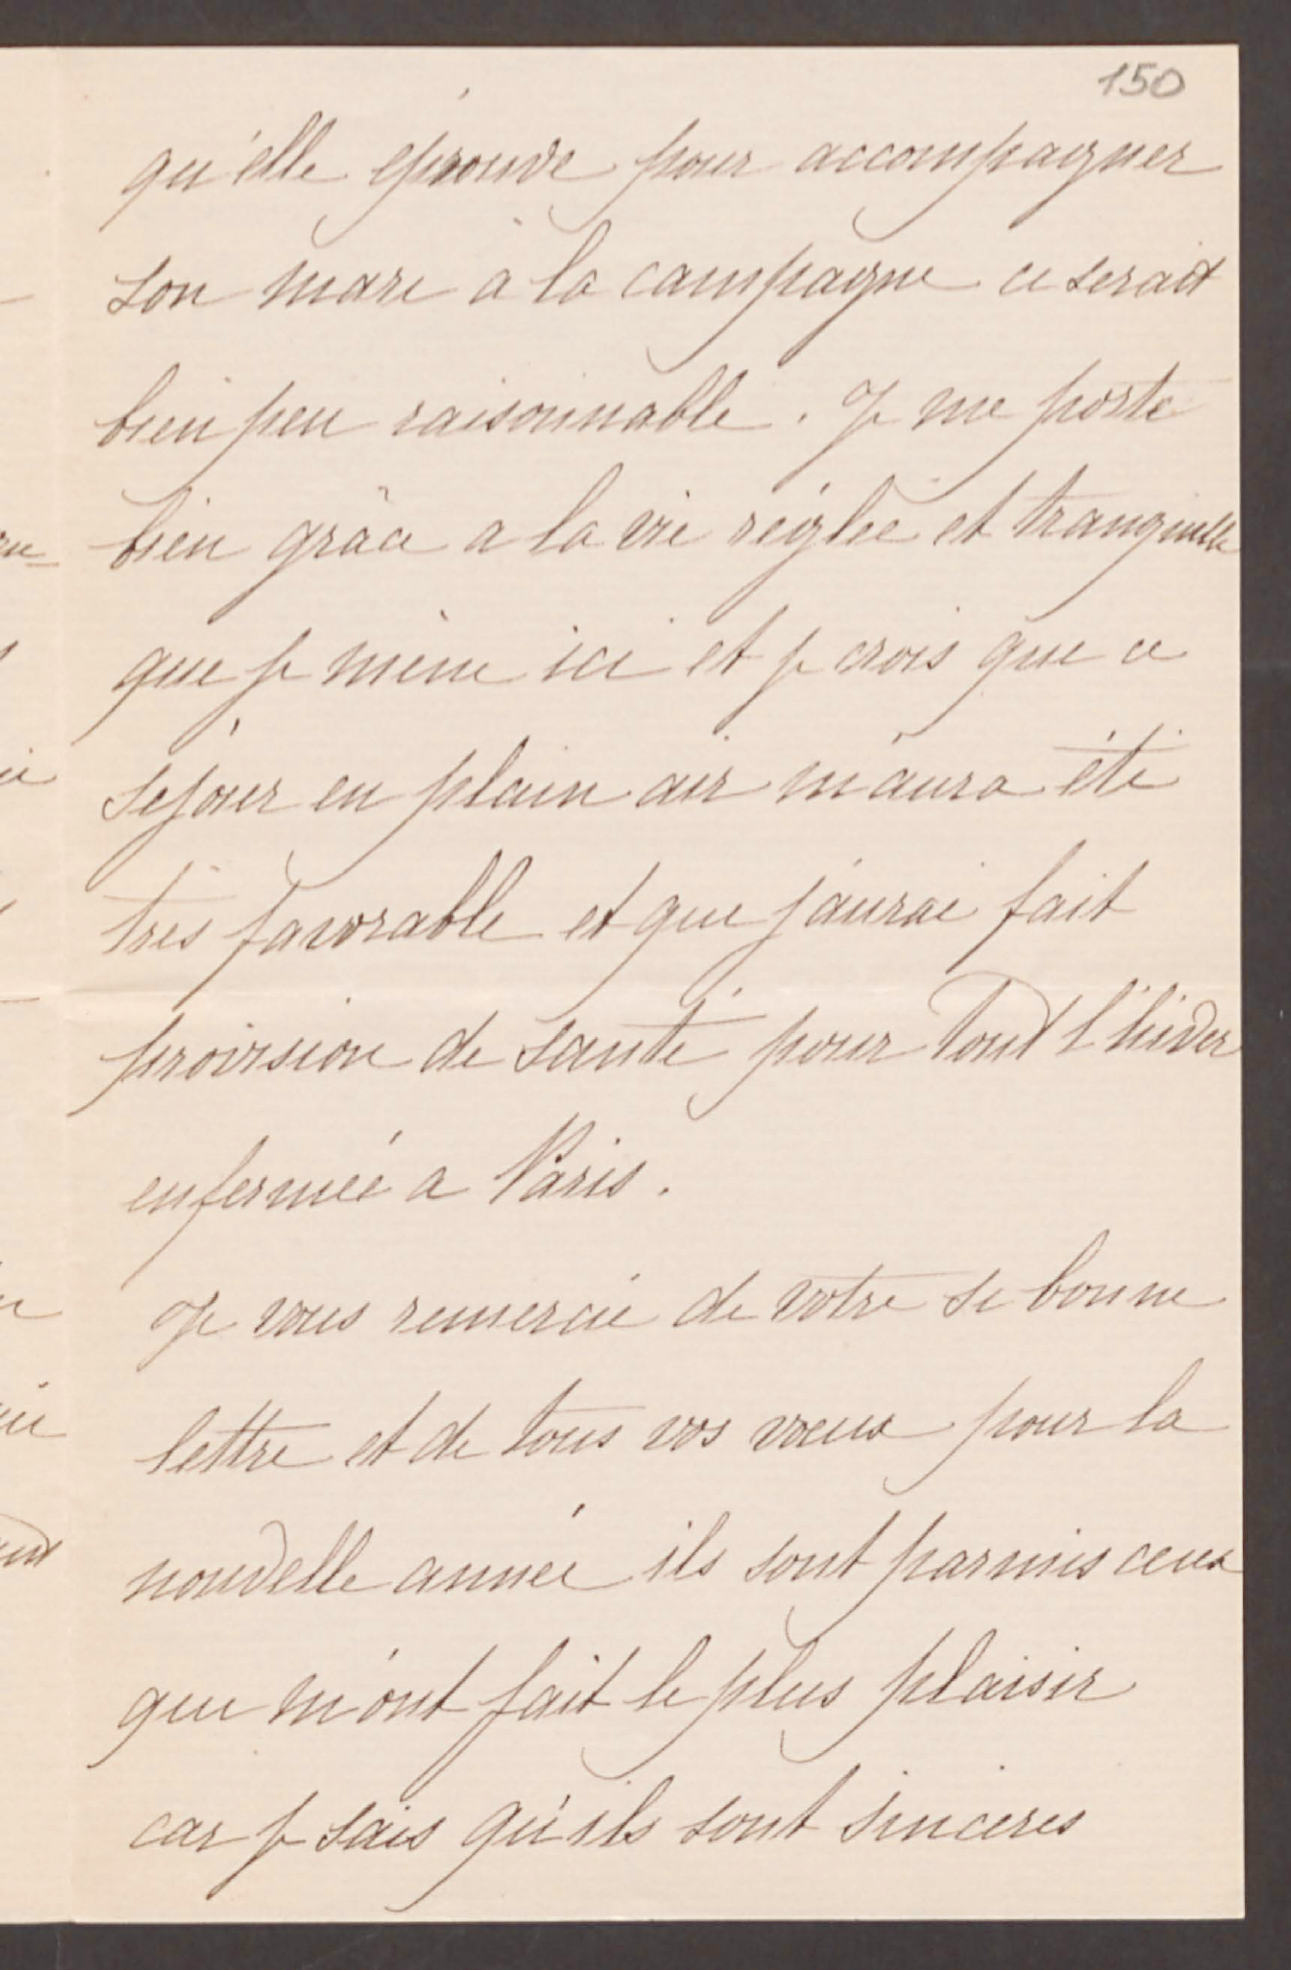 150
qu'elle éprouve pour accompagner
son mari à la campagne ce serait
bien peu raisonnable. Je me porte
bien grâce a la vie réglée et tranquille
que je mène ici et je crois que ce
séjour en plain air m'aura été
très favorable et que j'aurai fait
provision de santé pour tout l'hiver
enfermée a Paris.
Je vous remercie de votre si bonne
lettre et de tous vos vœux pour la
nouvelle année ils sont parmis ceux
qui m'ont fait le plus plaisir
car je sais qu'ils sont sincères